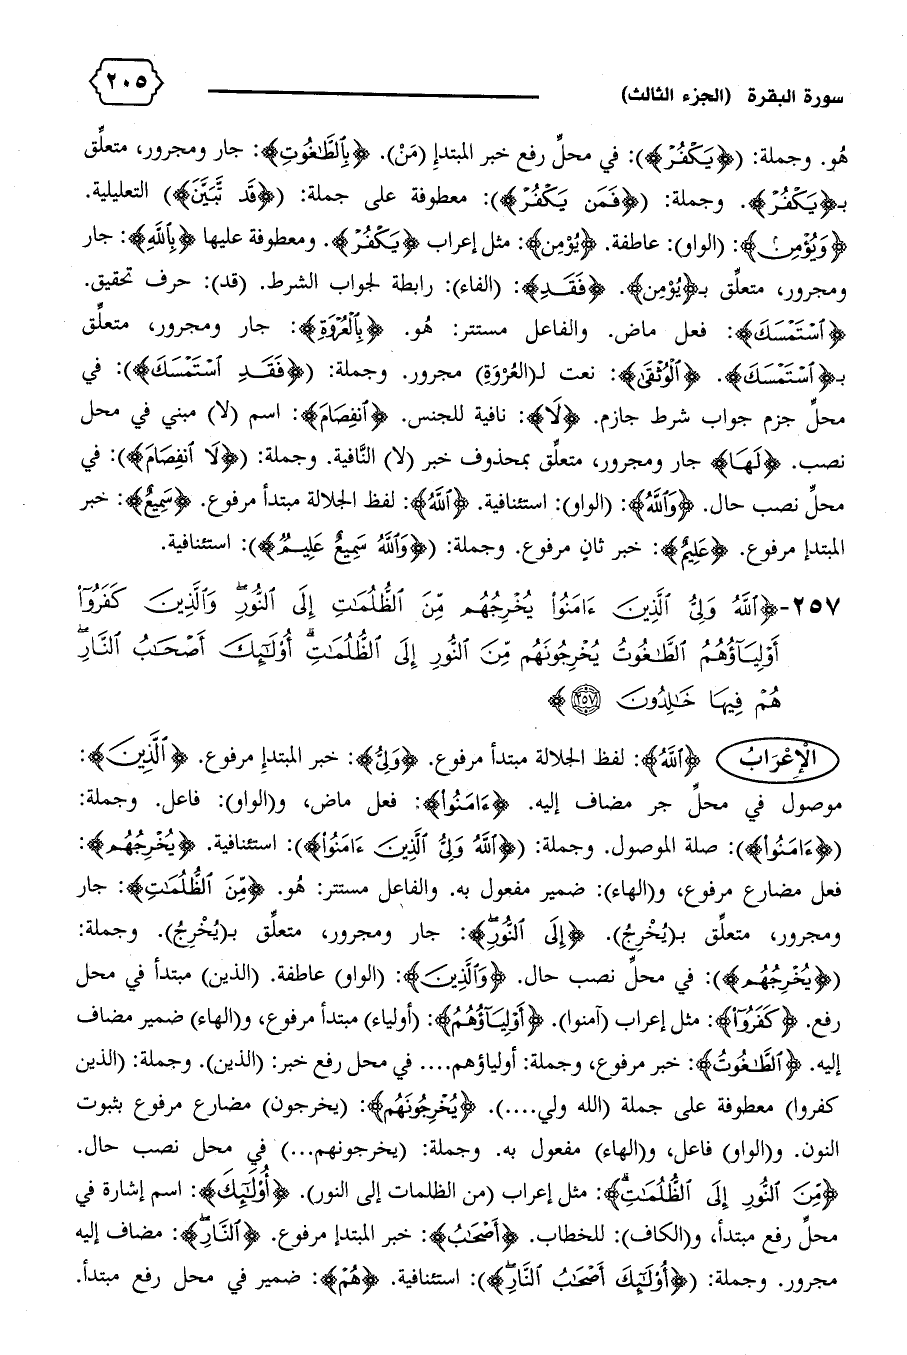 سورة البقرة (الجزء الثالث)
٢٠٥
هُو. وجملة: (﴿يَكْفُرْ﴾): في محلِّ رفع خبر المبتدإِ (مَنْ). ﴿بِٱلطَّـٰغُوتِ﴾: جار ومجرور، متعلِّق
بـ﴿يَكْفُرْ﴾. وجملة: (﴿فَمَن يَكْفُرْ﴾): معطوفة على جملة: (﴿قَد تَّبَيَّنَ﴾) التعليلية.
﴿وَيُؤْمِنۢ﴾: (الواو): عاطفة. ﴿يُؤْمِن﴾: مثل إعراب ﴿يَكْفُرْ﴾. ومعطوفة عليها ﴿بِٱللَّهِ﴾: جار
ومجرور، متعلِّق بـ﴿يُؤْمِن﴾. ﴿فَقَدِ﴾: (الفاء): رابطة لجواب الشرط. (قد): حرف تحقيق.
﴿ٱسْتَمْسَكَ﴾: فعل ماض. والفاعل مستتر: هُو. ﴿بِٱلْعُرْوَةِ﴾: جار ومجرور، متعلِّق
بـ﴿ٱسْتَمْسَكَ﴾. ﴿ٱلْوُثْقَىٰ﴾: نعت لـ(العُرْوَةِ) مجرور. وجملة: (﴿فَقَدِ ٱسْتَمْسَكَ﴾): في
محلِّ جزم جواب شرط جازم. ﴿لَا﴾: نافية للجنس. ﴿ٱنفِصَامَ﴾: اسم (لا) مبني في محل
نصب. ﴿لَهَا﴾ جار ومجرور، متعلِّق بمحذوف خبر (لا) النَّافية. وجملة: (﴿لَا ٱنفِصَامَ﴾): في
محلِّ نصب حال. ﴿وَٱللَّهُ﴾: (الواو): استئنافية. ﴿ٱللَّهُ﴾: لفظ الجلالة مبتدأ مرفوع. ﴿سَمِيعٌ﴾: خبر
المبتدإ مرفوع. ﴿عَلِيمٌ﴾: خبر ثانٍ مرفوع. وجملة: (﴿وَٱللَّهُ سَمِيعٌ عَلِيمٌ﴾): استئنافية.
٢٥٧-﴿ٱللَّهُ وَلِىُّ ٱلَّذِينَ ءَامَنُوا۟ يُخْرِجُهُم مِّنَ ٱلظُّلُمَـٰتِ إِلَى ٱلنُّورِ ۖ وَٱلَّذِينَ كَفَرُوٓا۟
أَوْلِيَآؤُهُمُ ٱلطَّـٰغُوتُ يُخْرِجُونَهُم مِّنَ ٱلنُّورِ إِلَى ٱلظُّلُمَـٰتِ ۗ أُو۟لَـٰٓئِكَ أَصْحَـٰبُ ٱلنَّارِ ۖ
هُمْ فِيهَا خَـٰلِدُونَ ٢٥٧﴾
الْإِعْرَابُ ﴿ٱللَّهُ﴾: لفظ الجلالة مبتدأ مرفوع. ﴿وَلِىُّ﴾: خبر المبتدإِ مرفوع. ﴿ٱلَّذِينَ﴾:
موصول في محلِّ جر مضاف إليه. ﴿ءَامَنُوا۟﴾: فعل ماض، و(الواو): فاعل. وجملة:
(﴿ءَامَنُوا۟﴾): صلة الموصول. وجملة: (﴿ٱللَّهُ وَلِىُّ ٱلَّذِينَ ءَامَنُوا۟﴾): استئنافية. ﴿يُخْرِجُهُم﴾:
فعل مضارع مرفوع، و(الهاء): ضمير مفعول به. والفاعل مستتر: هُو. ﴿مِّنَ ٱلظُّلُمَـٰتِ﴾: جار
ومجرور، متعلِّق بـ(يُخْرِجُ). ﴿إِلَى ٱلنُّورِ ۖ﴾: جار ومجرور، متعلِّق بـ(يُخْرِجُ). وجملة:
(﴿يُخْرِجُهُم﴾): في محلِّ نصب حال. ﴿وَٱلَّذِينَ﴾: (الواو) عاطفة. (الذين) مبتدأ في محل
رفع. ﴿كَفَرُوٓا۟﴾: مثل إعراب (آمنوا). ﴿أَوْلِيَآؤُهُمُ﴾: (أولياء) مبتدأ مرفوع، و(الهاء) ضمير مضاف
إليه. ﴿ٱلطَّـٰغُوتُ﴾: خبر مرفوع، وجملة: أولياؤهم.... في محل رفع خبر: (الذين). وجملة: (الذين
كفروا) معطوفة على جملة (الله ولي....). ﴿يُخْرِجُونَهُم﴾: (يخرجون) مضارع مرفوع بثبوت
النون. و(الواو) فاعل، و(الهاء) مفعول به. وجملة: (يخرجونهم...) في محل نصب حال.
﴿مِّنَ ٱلنُّورِ إِلَى ٱلظُّلُمَـٰتِ ۗ﴾: مثل إعراب (من الظلمات إلى النور). ﴿أُو۟لَـٰٓئِكَ﴾: اسم إشارة في
محلِّ رفع مبتدأ، و(الكاف): للخطاب. ﴿أَصْحَـٰبُ﴾: خبر المبتدإ مرفوع. ﴿ٱلنَّارِ ۖ﴾: مضاف إليه
مجرور. وجملة: (﴿أُو۟لَـٰٓئِكَ أَصْحَـٰبُ ٱلنَّارِ ۖ﴾): استئنافية. ﴿هُمْ﴾: ضمير في محل رفع مبتدأ.